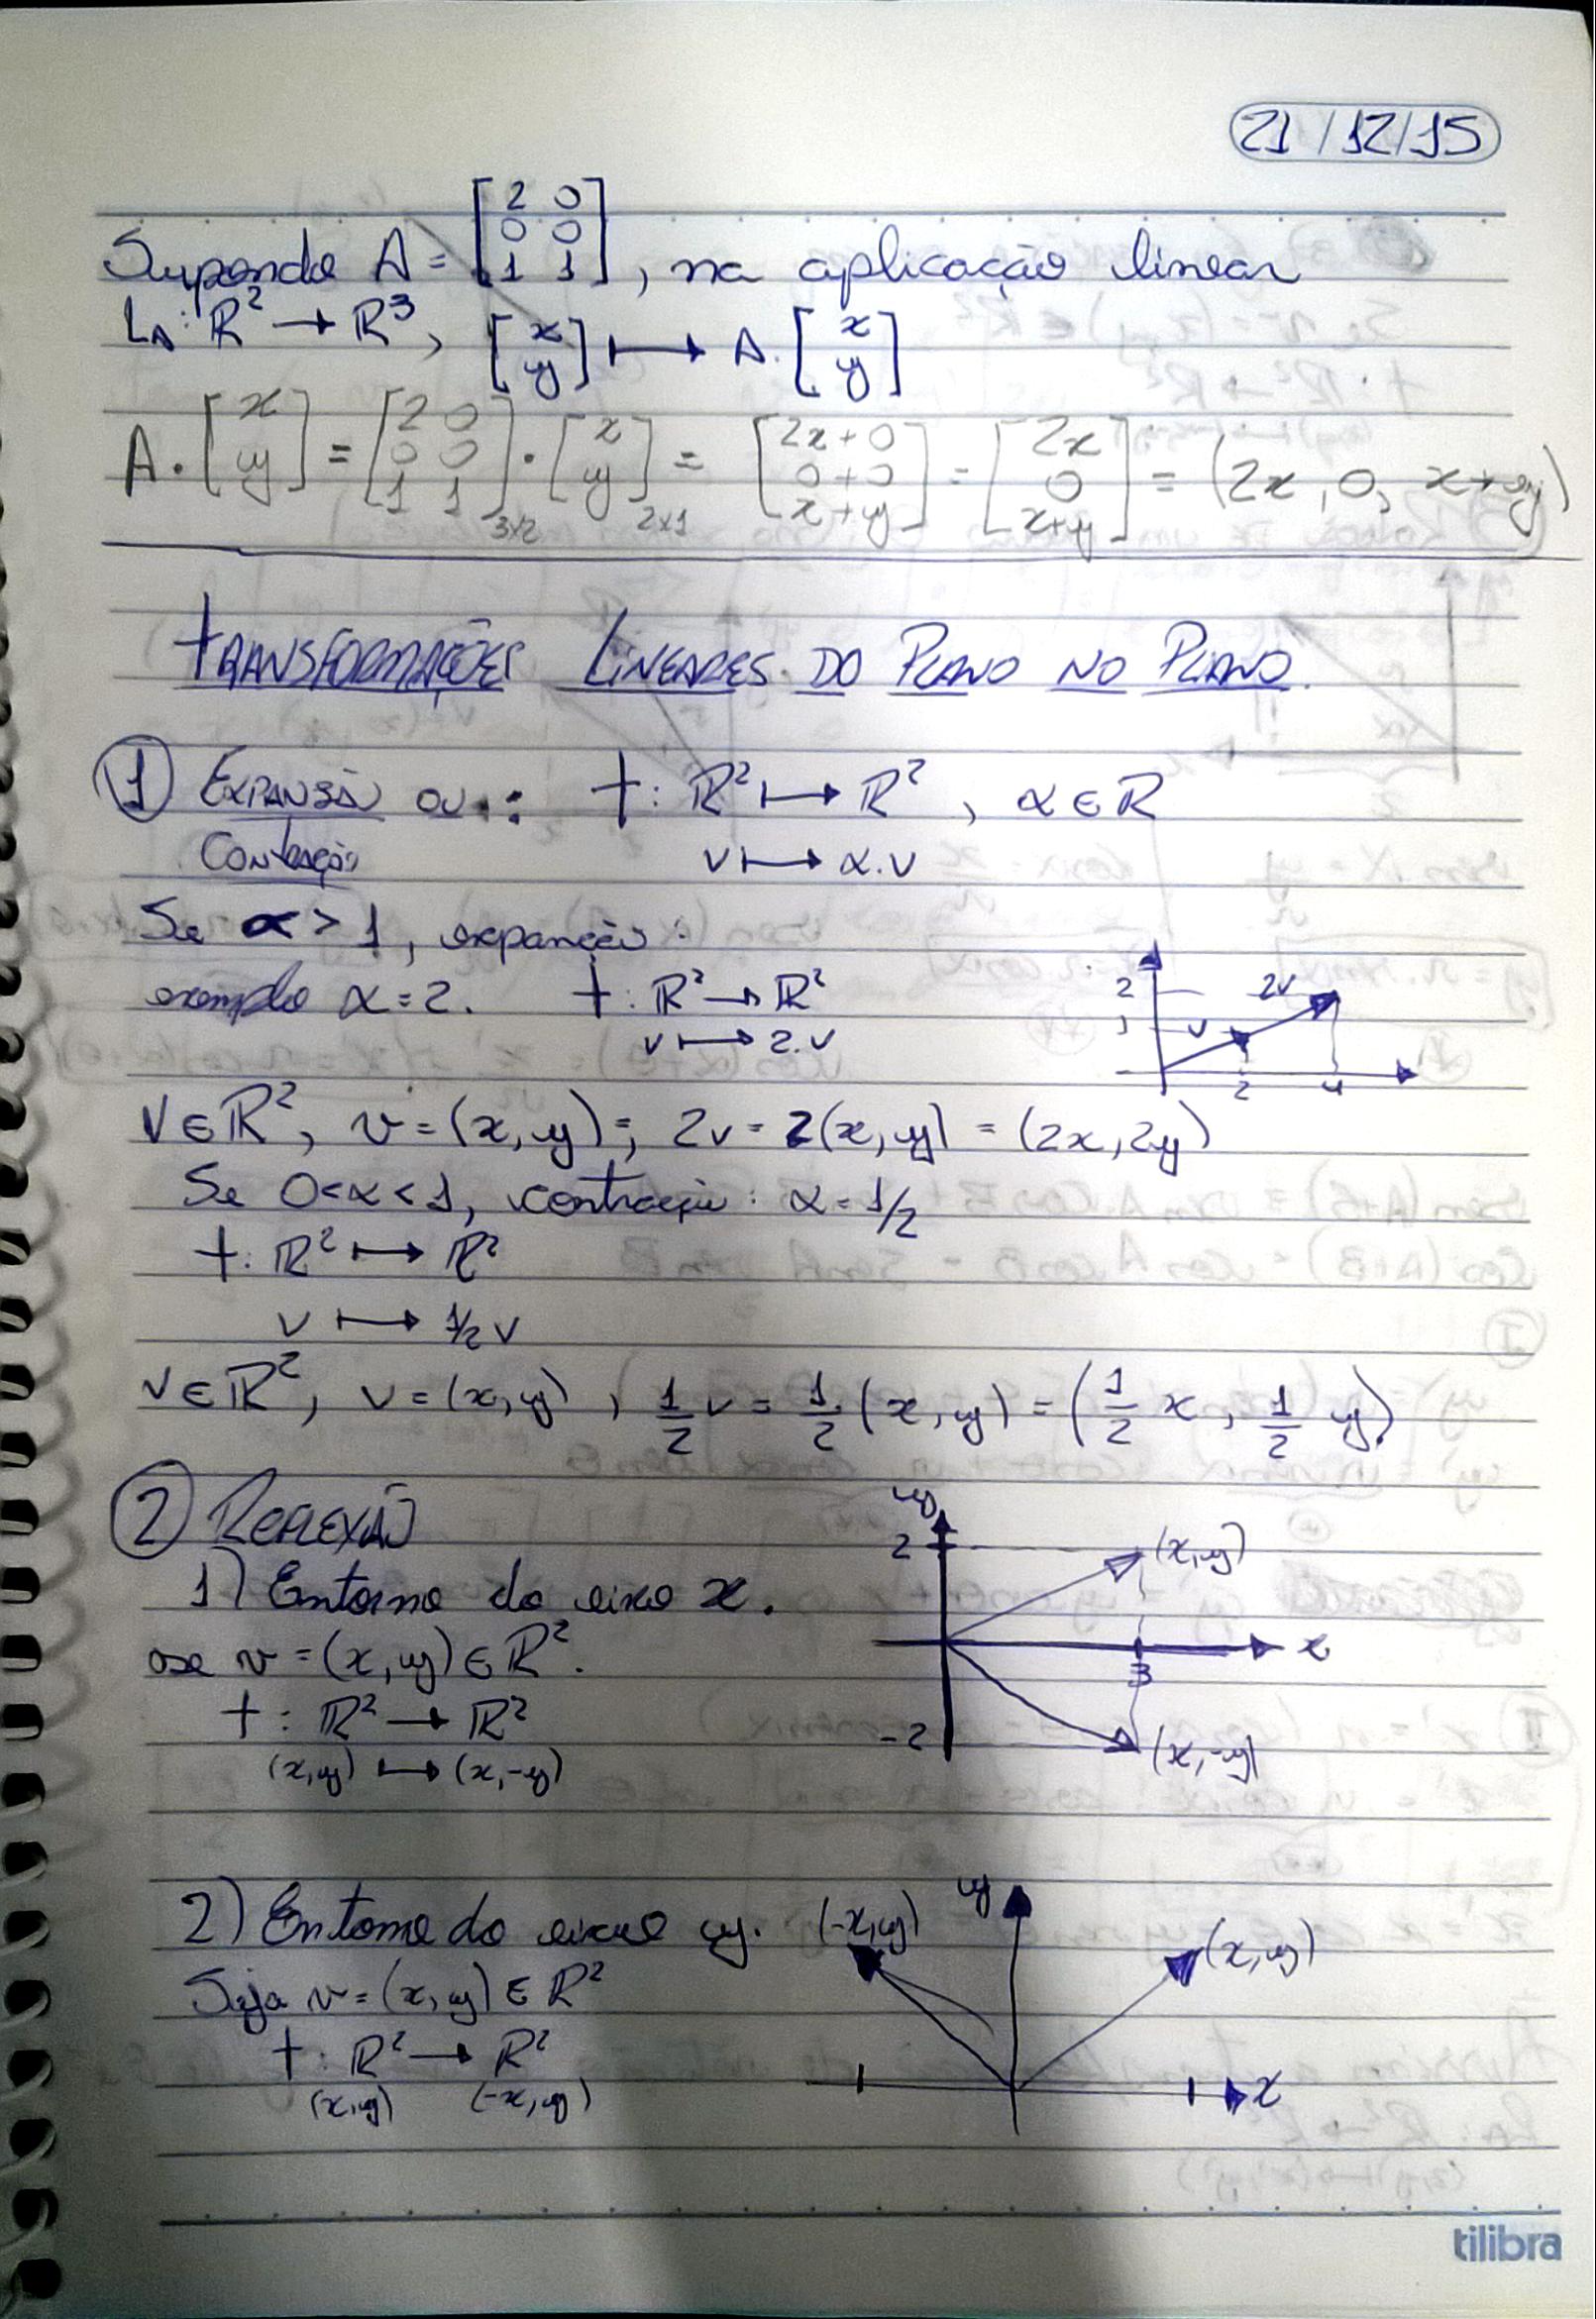 21/12/15
Supondo A = [2 0; 0 0; 1 1], na aplicação linear
L_A: R² → R³, [x; y] ↦ A.[x; y]
A.[x; y] = [2 0; 0 0; 1 1]3x2 . [x; y]2x1 = [2x+0; 0+0; x+y] = [2x; 0; x+y] = (2x, 0, x+y)
TRANSFORMAÇÕES LINEARES DO PLANO NO PLANO.
① EXPANSÃO OU : T: R² ↦ R², α ∈ R
CONTRAÇÃO v ↦ α.v
Se α > 1, expanção:
exemplo α = 2. T: R² → R²
v ↦ 2.v
2 1 v 2v 2 4
v ∈ R², v = (x, y); 2v = 2(x, y) = (2x, 2y)
Se 0<α<1, contração: α = 1/2
T: R² ↦ R²
v ↦ 1/2 v
v ∈ R², v = (x, y), 1/2 v = 1/2 (x, y) = (1/2 x, 1/2 y)
② REFLEXÃO
1) Entorno do eixo x.
v = (x, y) ∈ R².
T: R² → R²
(x,y) ↦ (x,-y)
y 2 (x,y) x 3 -2 (x,-y)
2) Entorno do eixo y.
Seja v = (x, y) ∈ R²
T: R² → R²
(x,y) (-x,y)
(-x,y) y (x,y) x
tilibra